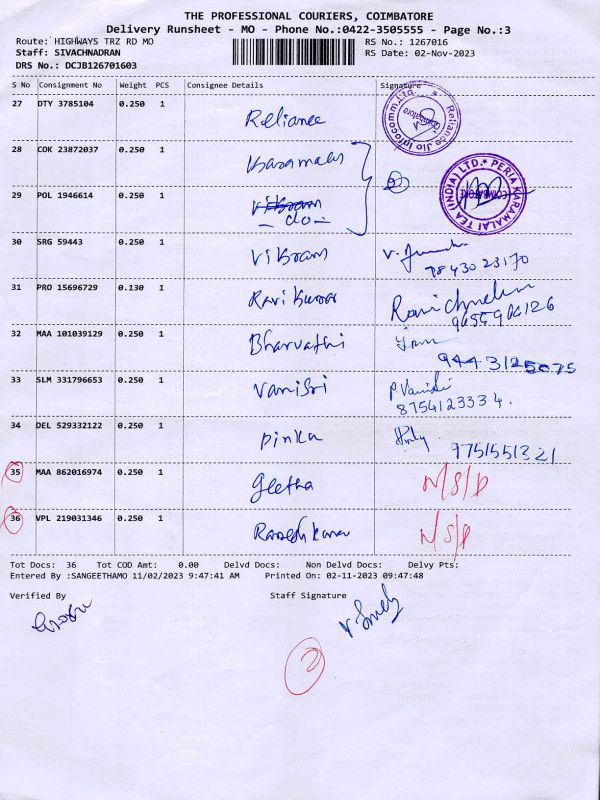 THE PROFESSIONAL COURIERS, COIMBATORE
Delivery Runsheet - MO - Phone No.:0422-3505555 - Page No.:3
Route: HIGHWAYS TRZ RD MO RS No.: 1267016
Staff: SIVACHNADRAN RS Date: 02-Nov-2023
DRS No.: DCJB126701603
S No Consignment No Weight PCS Consignee Details Signature
27 DTY 3785104 0.250 1 Reliance
Reliance Jio Infocomm Ltd. * Coimbatore
28 COK 23872037 0.250 1 Karamalai
PERIA KARAMALAI TEA (INDIA) LTD. * COIMBATORE
29 POL 1946614 0.250 1 Vikram
- do -
30 SRG 59443 0.250 1 Vikram
7843023170
31 PRO 15696729 0.130 1 Ravi Kumar
9655906126
32 MAA 101039129 0.250 1 Bharvathi
9443125075
33 SLM 331796653 0.250 1 VaniSri P Vanisri
8754123334.
34 DEL 529332122 0.250 1 Pinku
9751551321
35 MAA 862016974 0.250 1 Geetha N/S/P
36 VPL 219031346 0.250 1 N/S/P
Tot Docs: 36 Tot COD Amt: 0.00 Delvd Docs: Non Delvd Docs: Delvy Pts:
Entered By :SANGEETHAMO 11/02/2023 9:47:41 AM Printed On: 02-11-2023 09:47:48
Verified By Staff Signature
2